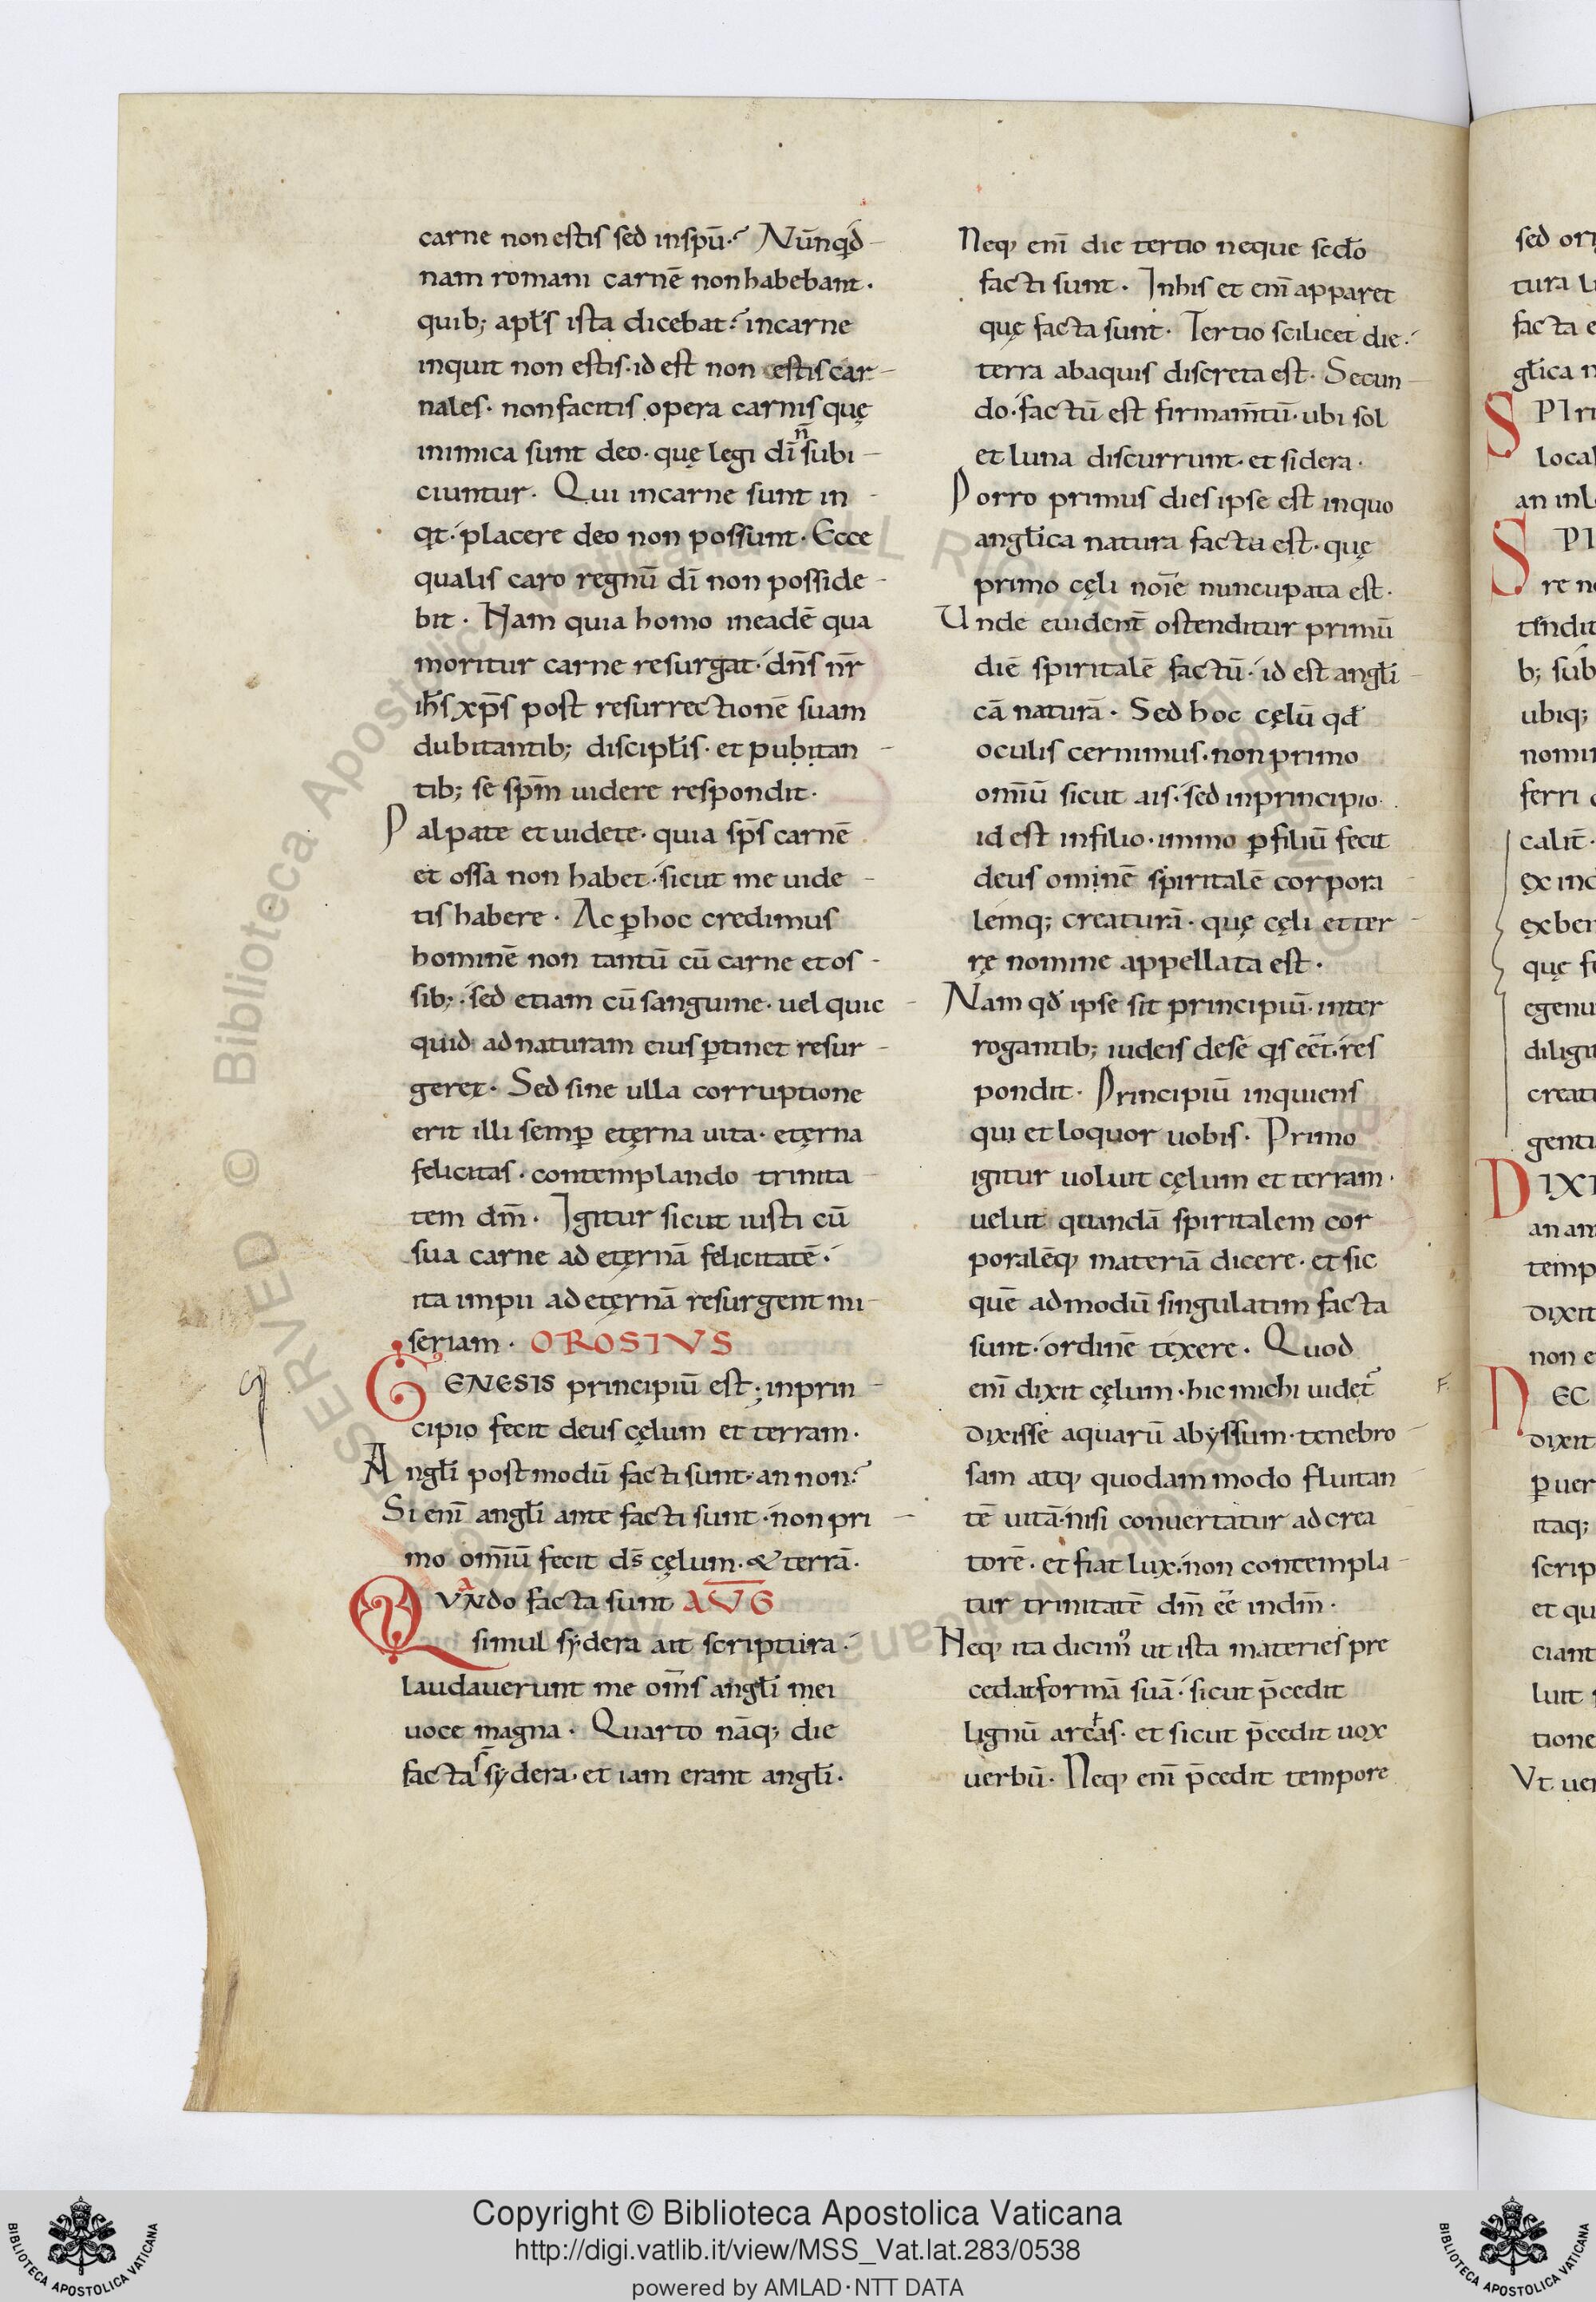 carne non estis sed in spū. Nūnqd
nam romani carnē non habebant.
quib; apłs ista dicebat. in carne
inquit non estis. id est non estis car
nales. non facitis opera carnis quę
inimica sunt deo. quę legi dī n̄ subi
ciuntur. Qui in carne sunt in
qt. placere deo non possunt. Ecce
qualis caro regnū dī non posside
bit. Nam quia homo in eadē qua
moritur carne resurgat. dn̄s nr̄
ih̄s xp̄s post resurrectionē suam
dubitantib; discipłis. et pubitan
tib; se spm̄ uidere respondit.
Palpate et uidete. quia sp̄s carnē
et ossa non habet. sicut me uide
tis habere. Ac ꝑ hoc credimus
hominē non tantū cū carne et os
sib; sed etiam cū sanguine. uel quic
quid ad naturam eius ꝑtinet resur
geret. Sed sine ulla corruptione
erit illi semꝑ etęrna uita. etęrna
felicitas. contemplando trinita
tem dm̄. Igitur sicut iusti cū
sua carne ad etęrnā felicitatē.
ita impii ad etęrnā resurgent mi
seriam. OROSIVS
GENESIS principiū est; in prin
cipio fecit deus cęlum et terram.
Angłi postmodū facti sunt. an non.
Si enī angłi ante facti sunt. non pri
mo om̄iū fecit ds̄ cęlum. & terrā.
QVANdo facta sunt AVG
simul sẏdera ait scriptura.
laudauerunt me om̄s angłi mei
uoce magna. Quarto nāq; die
facta s̄ sẏdera. et iam erant angłi.
Neq; enī die tertio neque scdo
facti sunt. In his et enī apparet
quę facta sunt. Tertio scilicet die.
terra ab aquis discreta est. Secun
do. factū est firmam̄tū. ubi sol
et luna discurrunt. et sidera.
Porro primus dies ipse est in quo
angłica natura facta est. quę
primo cęli noīe nuncupata est.
Unde euident̄ ostenditur primū
diē spiritalē factū. id est angłi
cā naturā. Sed hoc cęlū qđ
oculis cernimus. non primo
om̄iū sicut ais. sed in principio
id est in filio. immo ꝑ filiū fecit
deus ominē spiritalē corpora
lemq; creaturā. quę cęli et ter
rę nomine appellata est.
Nam qđ ipse sit principiū. inter
rogantib; iudeis de se qs eēt. res
pondit. Principiū inquiens
qui et loquor uobis. Primo
igitur uoluit cęlum et terram.
uelut quandā spiritalem cor
poralēq; materiā dicere. et sic
quē ad modū singulatim facta
sunt. ordinē texere. Quod
enī dixit cęlum. hic michi uidet᷑
dixisse aquarū abẏssum. tenebro
sam atq; quodam modo fluitan
tē uitā. nisi conuertatur ad crea
torē. et fiat lux. non contempla
tur trinitatē dm̄ eē in dm̄.
Neq; ita dicim᷒ ut ista materies pre
cedat formā suā. sicut p̄cedit
lignū arcās. et sicut p̄cedit uox
uerbū. Neq; enī p̄cedit tempore
sed ori
tura
facta e
głica n
SPIri
local
an inl
SPI
re n
tendit
b; sub
ubiq;
nomin
ferri
calit̄.
ex ind
ex ben
quę f
egenu
diligi
creati
genti
DIXI
an am
temp
dixit
non e
NEC
dixit
ꝑ uer
itaq;
scrip
et qu
ciant
luit
tione
Vt uer
Copyright © Biblioteca Apostolica Vaticana
http://digi.vatlib.it/view/MSS_Vat.lat.283/0538
powered by AMLAD·NTT DATA
BIBLIOTECA APOSTOLICA VATICANA
BIBLIOTECA APOSTOLICA VATICANA